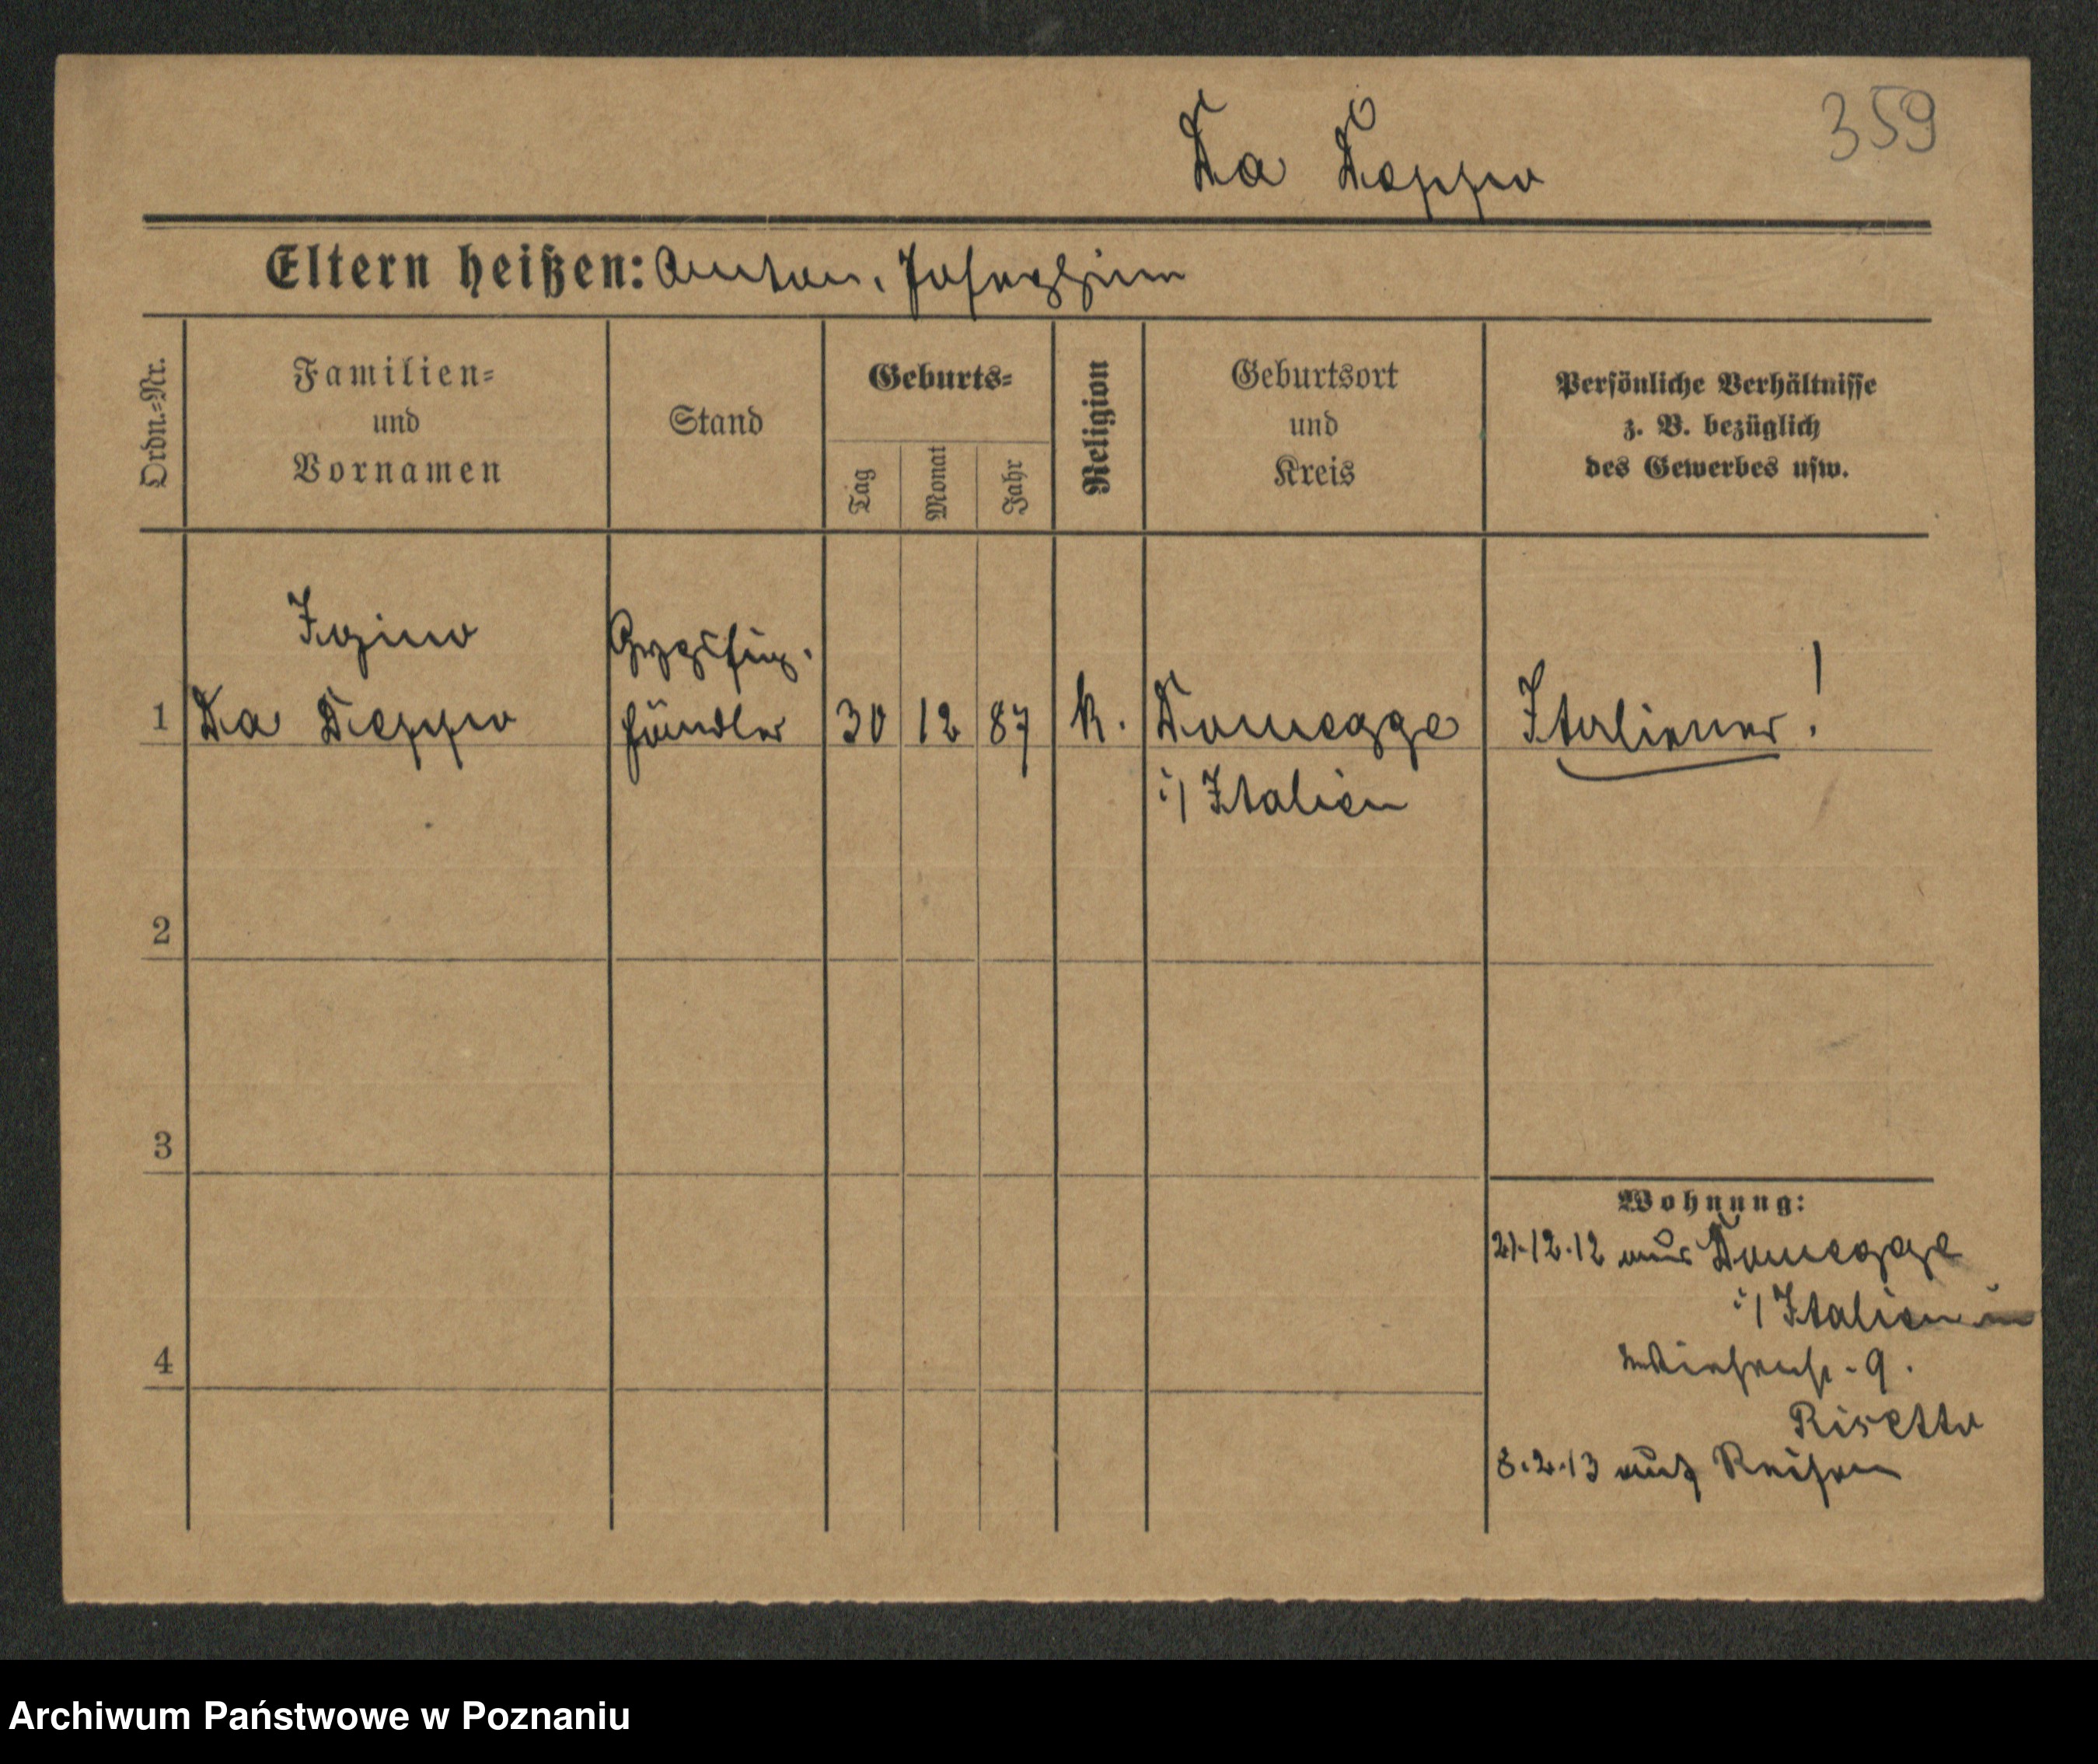 359
Da Deppo
Eltern heißen: Anton, Josephine
Ordn.=Nr.
Familien=
und
Vornamen
Stand
Geburts=
Tag
Monat
Jahr
Religion
Geburtsort
und
Kreis
Persönliche Verhältnisse
z. B. bezüglich
des Gewerbes usw.
Igino Gypsfig.
1 Da Deppo händler 30 12 87 k. Domegge Italiener!
i/ Italien
2
3
4
Wohnung:
21.12.12 aus Domegge
i/ Italien
9.
Risetto
8.2.13 auf Reisen
Archiwum Państwowe w Poznaniu